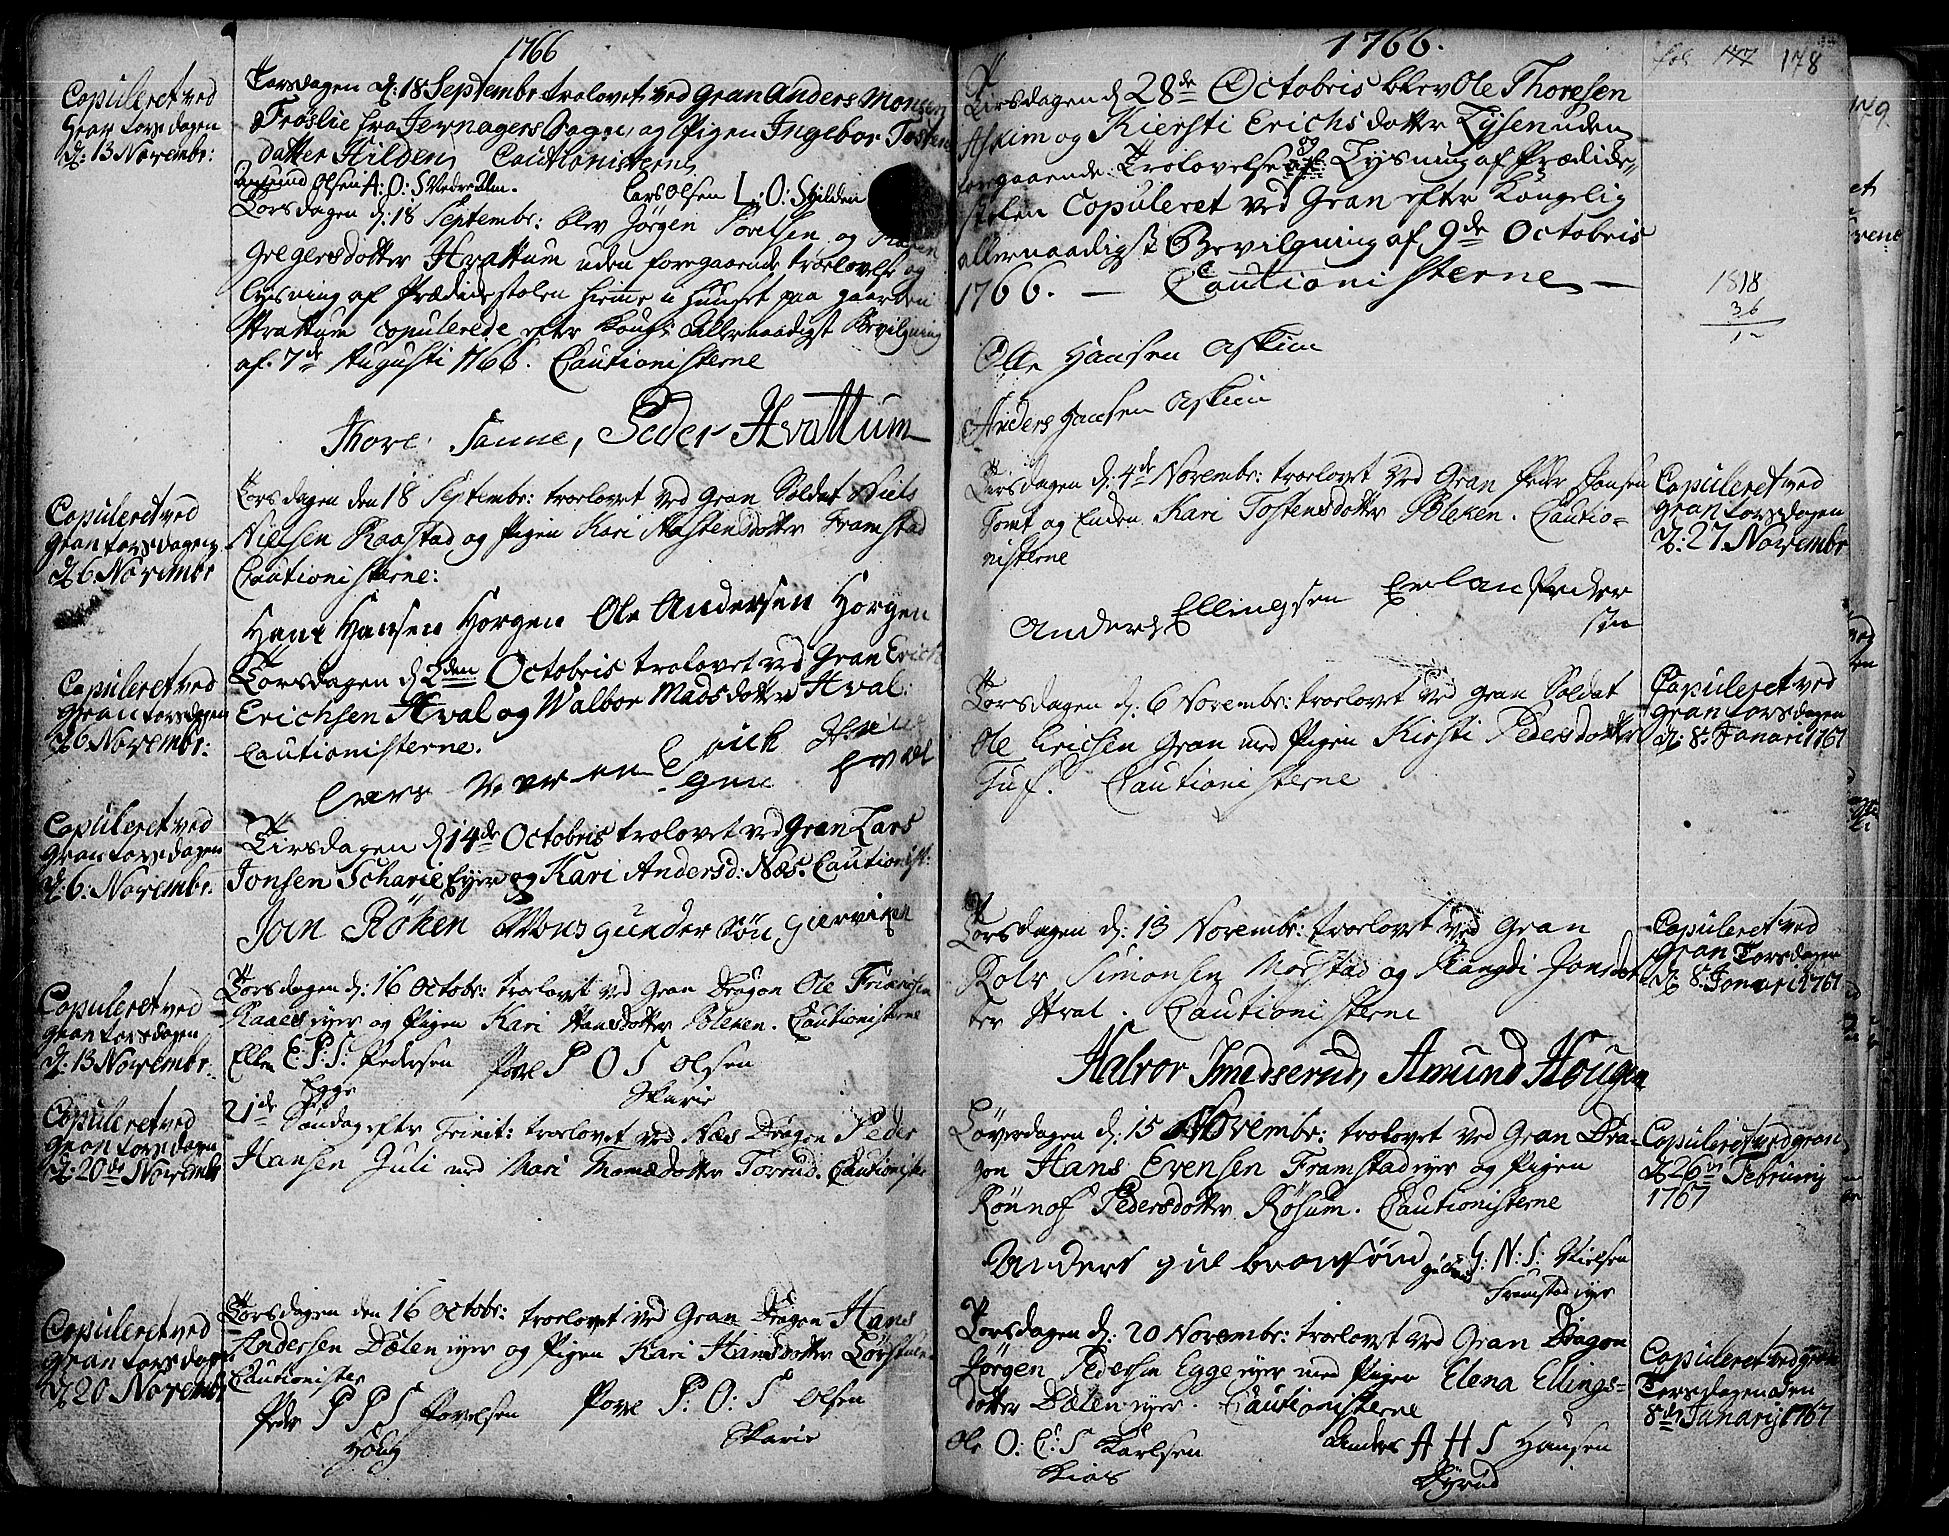 1766
Copuleret ved
Gran torsdagen
d: 13 Novembr:
Torsdagen d: 18 Septembr trolovet ved Gran Anders Monsen
Froslie fra Jevnagers Sogn og Pigen Ingebor Tosten
datter Hilden Cautionisterne
Amund Olsen A: O: S Vedre Alm. Lars Olsen L: O: S Hilden
Torsdagen d: 18 Septembr: blev Jørgen Povelsen og Karen
Gregersdotter Hvattum uden foregaaende trolovelse og
Lysning af Prædickestolen hiemme i Huuset paa gaarden
Hvattum copulerede efter Kongl: Allernaadigst Bevilgning
af 7de Augusti 1766. Cautionisterne
Thore Sanne, Peder Hvattum
Copuleret ved
Gran torsdagen
d 6 Novembr
Torsdagen den 18 Septembr: trolovet ved Gran Soldat Niels
Nielsen Raastad og Pigen Kari Tostensdotter Framstad
Cautionisterne:
Hans Hansen Horgen Ole Andersen Horgen
Copuleret ved
Gran torsdagen
d 6 Novembr:
Torsdagen d 2den Octobris trolovet ved Gran Erich
Erichsen Hval og Walbor Madsdotter Hval:
Cautionisterne.
Lars Erich Hval
Copuleret ved
Gran torsdagen
d: 6. Novembr.
Tirsdagen d 14de Octobris trolovet ved Gran Lars
Jonsen Scharie Eyer og Kari Andersd: Næs. Cautionist:
Joen Röken Mons gunder søn gierviken
Copuleret ved
Gran torsdagen
d: 13 Novembr.
Torsdagen d: 16 Octobr: trolovet ved Gran Dragon Ole Fridrichsen
eyer og Pigen Kari Hansdotter Bleken. Cautionisterne
Ellen E: P: S: Pedersen Povel P O S Olsen
Egge Skarie
Copuleret ved
Gran torsdagen
d: 20de Novembr
21de Søndag efter Trinit: trolovet ved Næs Dragon Peder
Hansen Juli med Mari Thomædotter Torrud. Cautionister
Copuleret ved
Gran torsdagen
d 20 Novembr
Torsdagen den 16 Octobr: trolovet ved Gran Dragon Hans
Andersen Dælen eyer og Pigen Kari Hansdotter
Cautionister
Peder P P S Povelsen Povel P: O: S Olsen
Houg Skarie
1766.
fol 177 178
Tirsdagen d 28de Octobris blev Ole Thoresen
Askim og Kiersti Erichsdotter Lysen uden
foregaaende Trolovelse og Lysning af Prædicke=
stolen Copuleret ved Gran efter Kongelig
allernaadigst Bevilgning af 9de Octobris
1766. — Cautionisterne —
1818
36
Olle Hansen Askim
Anders Hansen Askim
Tirsdagen d: 4de Novembr: trolovet ved Gran Peder Jansen
Tomt og Enken Kari Tostensdotter Bleken. Cautio=
nisterne
Anders Ellingsen Erlan Peder
søn
Copuleret ved
Gran torsdagen
d: 27 Novembr
Torsdagen d: 6 Novembr: trolovet ved Gran Soldat
Ole Ericsen Gran med Pigen Kirsti Pedersdotter
Cautionisterne
Copuleret ved
Gran torsdagen
d: 8 Januari 1767
Torsdagen d: 13 Novembr: trolovet ved Gran
Simonsen Morstad og Jonsdot
ter Hval. Cautionisterne
Halvor Smedserud, Amund Hougen
Copuleret ved
Gran Torsdagen
d 8 Januari 1767
Løverdagen d: 15 Novembr: trolovet ved Gran Dra=
gon Hans Evensen Framstadeyer og Pigen
Rönnof Pedersdotter Røsum. Cautionisterne
Anders G: N: S: Nielsen
Framstad eyer
Copuleret ved Gran
d 26 Februarij
1767
Torsdagen d: 20 Novembr: trolovet ved Gran Dragon
Jørgen Pedersen Egge eyer med Pigen Elena Ellings=
dotter Dælen eyer. Cautionisterne
Ole O: C: S Karlsen Anders A H S Hansen
Kios Dyrud
Copuleret ved Gran
Torsdagen den
8de Januarij 1767
179.